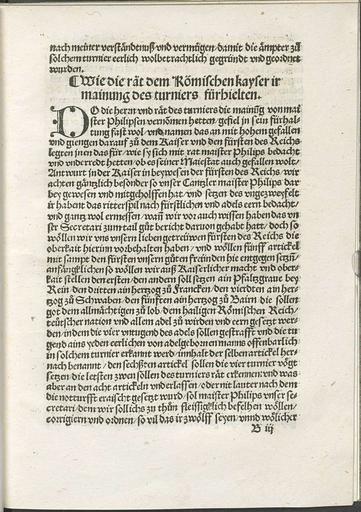 nach meiner verständtnuß vnd vermügen damit die ämpter zů
solchem turnier eerlich wolbetrachtlich gegründt vnd geordnet
wurden.
Wie die rät dem Römischen kayser ir
mainung des turniers fürhielten.
DO die herrn vnd rät des turniers die mainũg von mai
ster Philipsen vernomen hetten gefiel in sein fürhal-
tung fast wol vnd namen das an mit hohem gefallen
vnd giengen darauf zů dem Kaiser vnd den fürsten des Reichs
legten in en das für wie sy sich mit rat maister Philips bedacht
vnd vnderredt hetten ob es seiner Maiestat auch gefallen wolt
Antwurt in der Kaiser in beywesen der fürsten des Reichs wir
achten gäntzlich besonder so vnser Cantzler maister Philips dar
bey gewesen vnd mitgeholffen hat vnd setzen des vngezweyfelt
ir habent das ritterspil nach fürstlichen vnd adels eern bedacht
vnd gantz wol ermessen wañ wir vor auch wissen haben das vn
ser Secretari zum tail gůt bericht daruon gehabt hatt doch so
wöllen wir vns vnsern lieben getreüwen fürsten des Reichs die
oberkait hierinn vorbehalten haben vnd wöllen fünff artickel
mit sampt den fürsten vnsern gůten freinden hie entgegen setzñ
anfängklichen so wöllen wir auß Kaiserlicher macht vnd ober
kait stellen den ersten den andern soll setzen ain Pfaltzgraue bey
Rein den dritten ain hertzog zů Francken den vierdten ain her
tzog zů Schwaben den fünften ain hertzog zů Bairn die sollen
got dem allmächtigen zů lob dem hailigen Römischen Reich
teütscher nation vnd allem adel zů wirden vnd eern gesetzt wer
den in dem die vier vntugent des adels sollen gestrafft vnd die tu
gend ains yeden eerlichen von adel gebornen manns offenbarlich
in solchem turnier erkannt werd innhalt der selben artickel her
nach benannt den sechsten artickel sollen die vier turnier vögt
setzen die letsten zwen sollen des turniers rät erkennen vnd was
aber an den acht artickeln vnderlassen oder nit lauter nach dem
die notturfft eraischt gesetzt wurd sol maister Philips vnser se-
cretari dem wir sollichs zů thůn fleissigklich befelhen wöllen
corrigiern vnd ordnen so vil das ir zwölff seyen vnnd wölicher
B iij